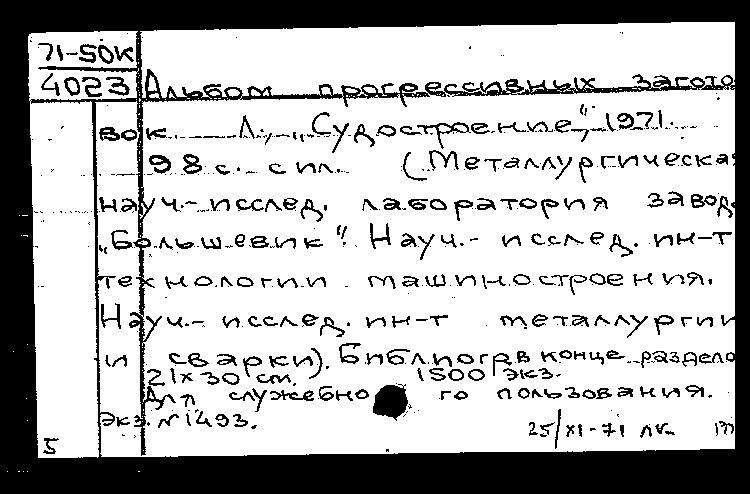 71-50К
4023 Альбом прогрессивных загото
вок Л., „Судостроение", 1971.
98 с. с ил. (Металлургическая
науч.-исслед. лаборатория завод.
„Большевик". Науч.- исслед. ин-т
технологии машиностроения.
Науч.- исслед. ин-т металлургии
и сварки). Библиогр. в конце раздело
21×30 cm. 1500 экз.
Для служебно го пользования.
экз. №1493.
5 25/XI-71